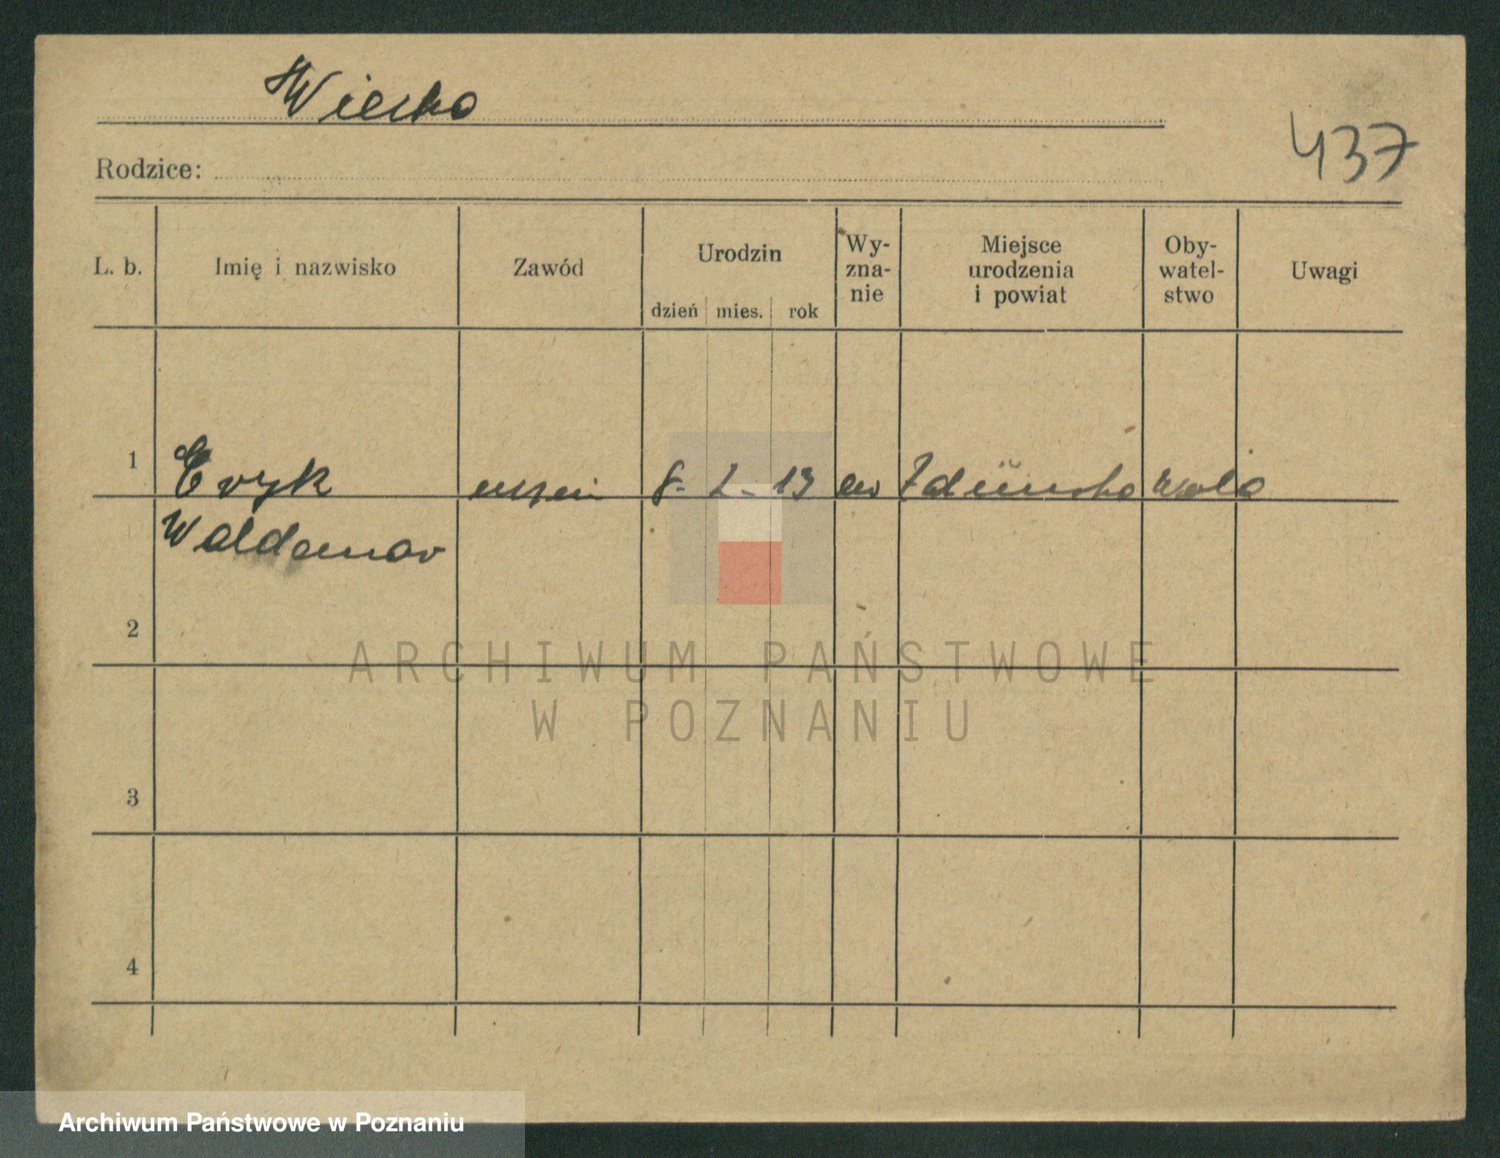 437
Rodzice:
L. b. Imię i nazwisko Zawód Urodzin dzień mies. rok Wy-zna-nie Miejsce urodzenia i powiat Oby-watel-stwo Uwagi
1 Eryk uczeń 8. 2. 13 ew Zduńska Wola
Waldemar
2
3
4
ARCHIWUM PAŃSTWOWE
W POZNANIU
Archiwum Państwowe w Poznaniu